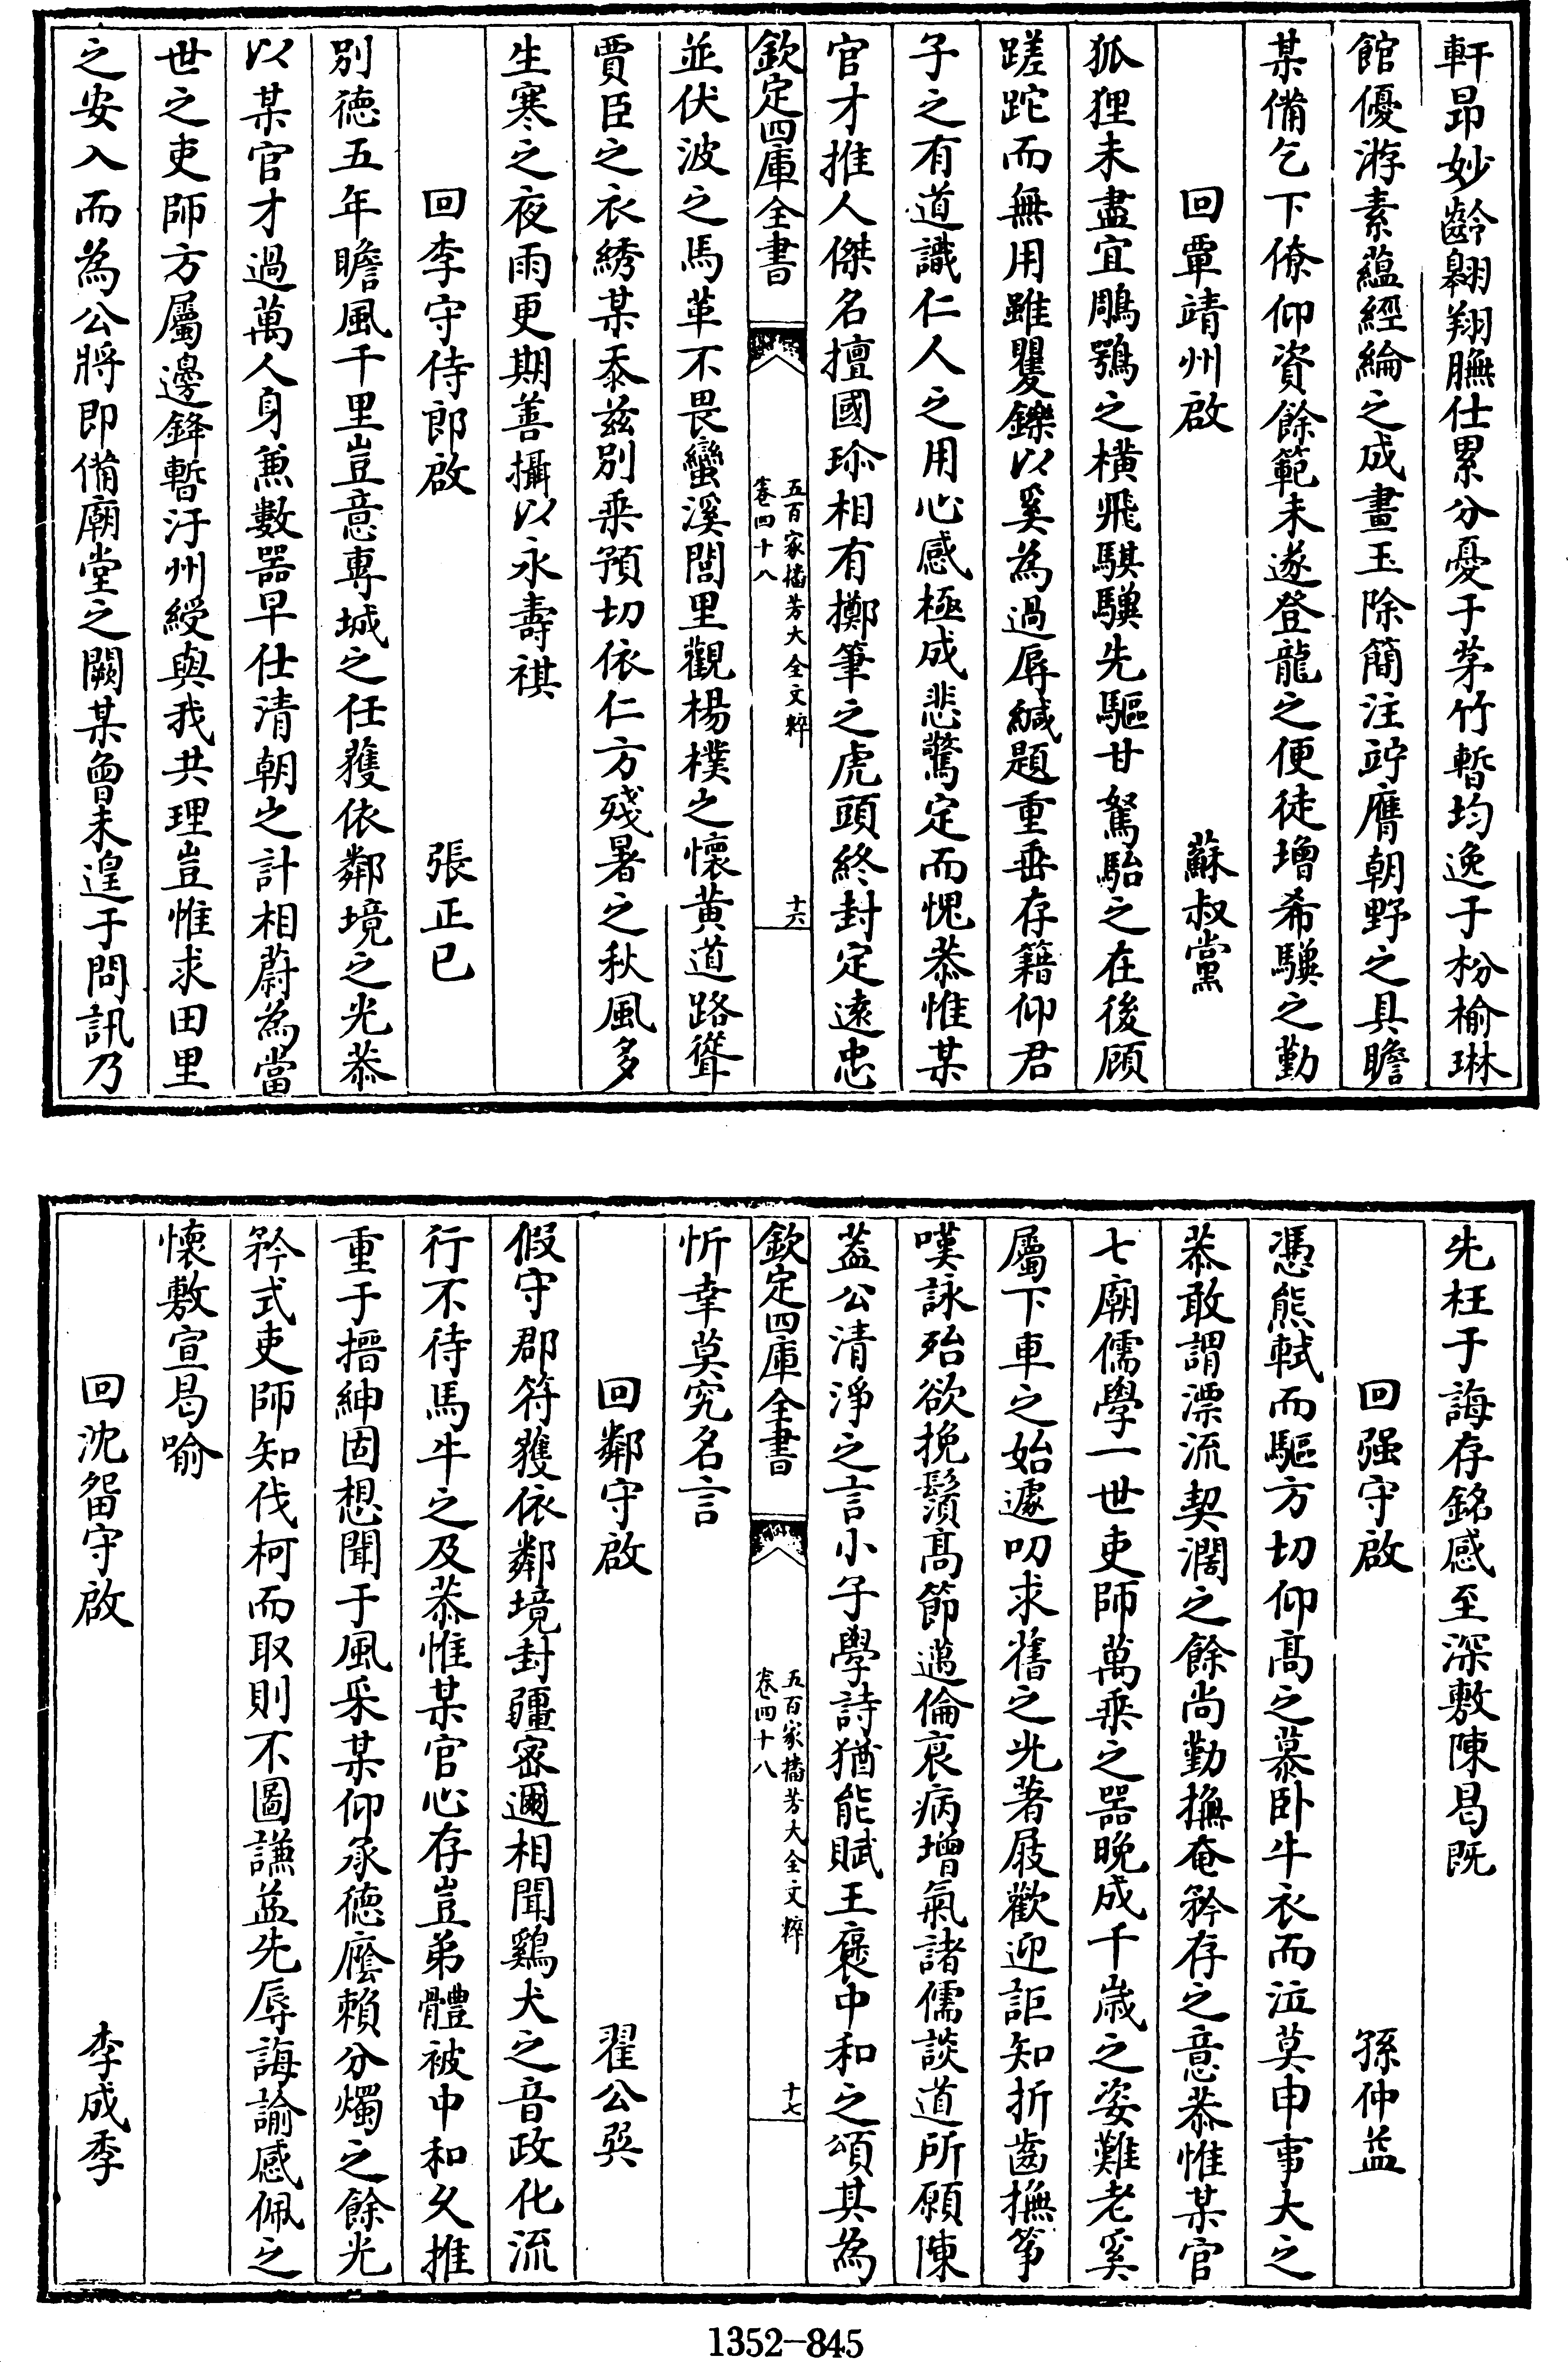 軒昂妙齡翱翔膴仕累分憂于茅竹暫均逸于枌榆琳
館優游素蘊經綸之成畫玉除簡注竚膺朝野之具瞻
某備乞下僚仰資餘範未遂登龍之便徒增希驥之勤
回覃靖州啟　蘇叔黨
狐狸未盡宜鵰鶚之橫飛騏驥先驅甘駑駘之在後顧
蹉跎而無用雖矍鑠以奚為過辱緘題重垂存籍仰君
子之有道識仁人之用心感極成悲驚定而愧恭惟某
官才推人傑名擅國珍相有擲筆之虎頭終封定遠忠
欽定四庫全書　五百家播芳大全文粹　卷四十八　十六
並伏波之馬革不畏蠻溪閭里觀楊樸之懷黃道路聳
賈臣之衣綉某忝茲別乘預切依仁方殘暑之秋風多
生寒之夜雨更期善攝以永壽祺
回李守侍郎啟　張正已
別德五年瞻風千里豈意專城之任獲依鄰境之光恭
以某官才過萬人身兼數器早仕清朝之計相蔚為當
世之吏師方屬邊鋒暫汙州綬與我共理豈惟求田里
之安入而為公將即備廟堂之闕某曾未遑于問訊乃
先枉于誨存銘感至深敷陳曷既
回强守啟　孫仲益
憑熊軾而驅方切仰高之慕卧牛衣而泣莫申事大之
恭敢謂漂流契濶之餘尚勤撫奄矜存之意恭惟某官
七廟儒學一世吏師萬乘之器晚成千歲之姿難老奚
屬下車之始遽叨求舊之光著屐歡迎詎知折齒撫箏
嘆詠殆欲挽鬚高節邁倫衰病增氣諸儒談道所願陳
蓋公清淨之言小子學詩猶能賦王褒中和之頌其為
欽定四庫全書　五百家播芳大全文粹　卷四十八　十七
忻幸莫究名言
回鄰守啟　翟公巽
假守郡符獲依鄰境封疆密邇相聞鷄犬之音政化流
行不待馬牛之及恭惟某官心存豈弟體被中和久推
重于搢紳固想聞于風采某仰承德廕賴分燭之餘光
矜式吏師知伐柯而取則不圖謙益先辱誨諭感佩之
懷敷宣曷喻
回沈留守啟　李成季
1352-845